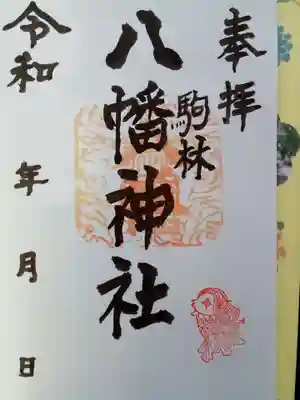 奉拝
駒林
八幡神社
令和 年 月 日